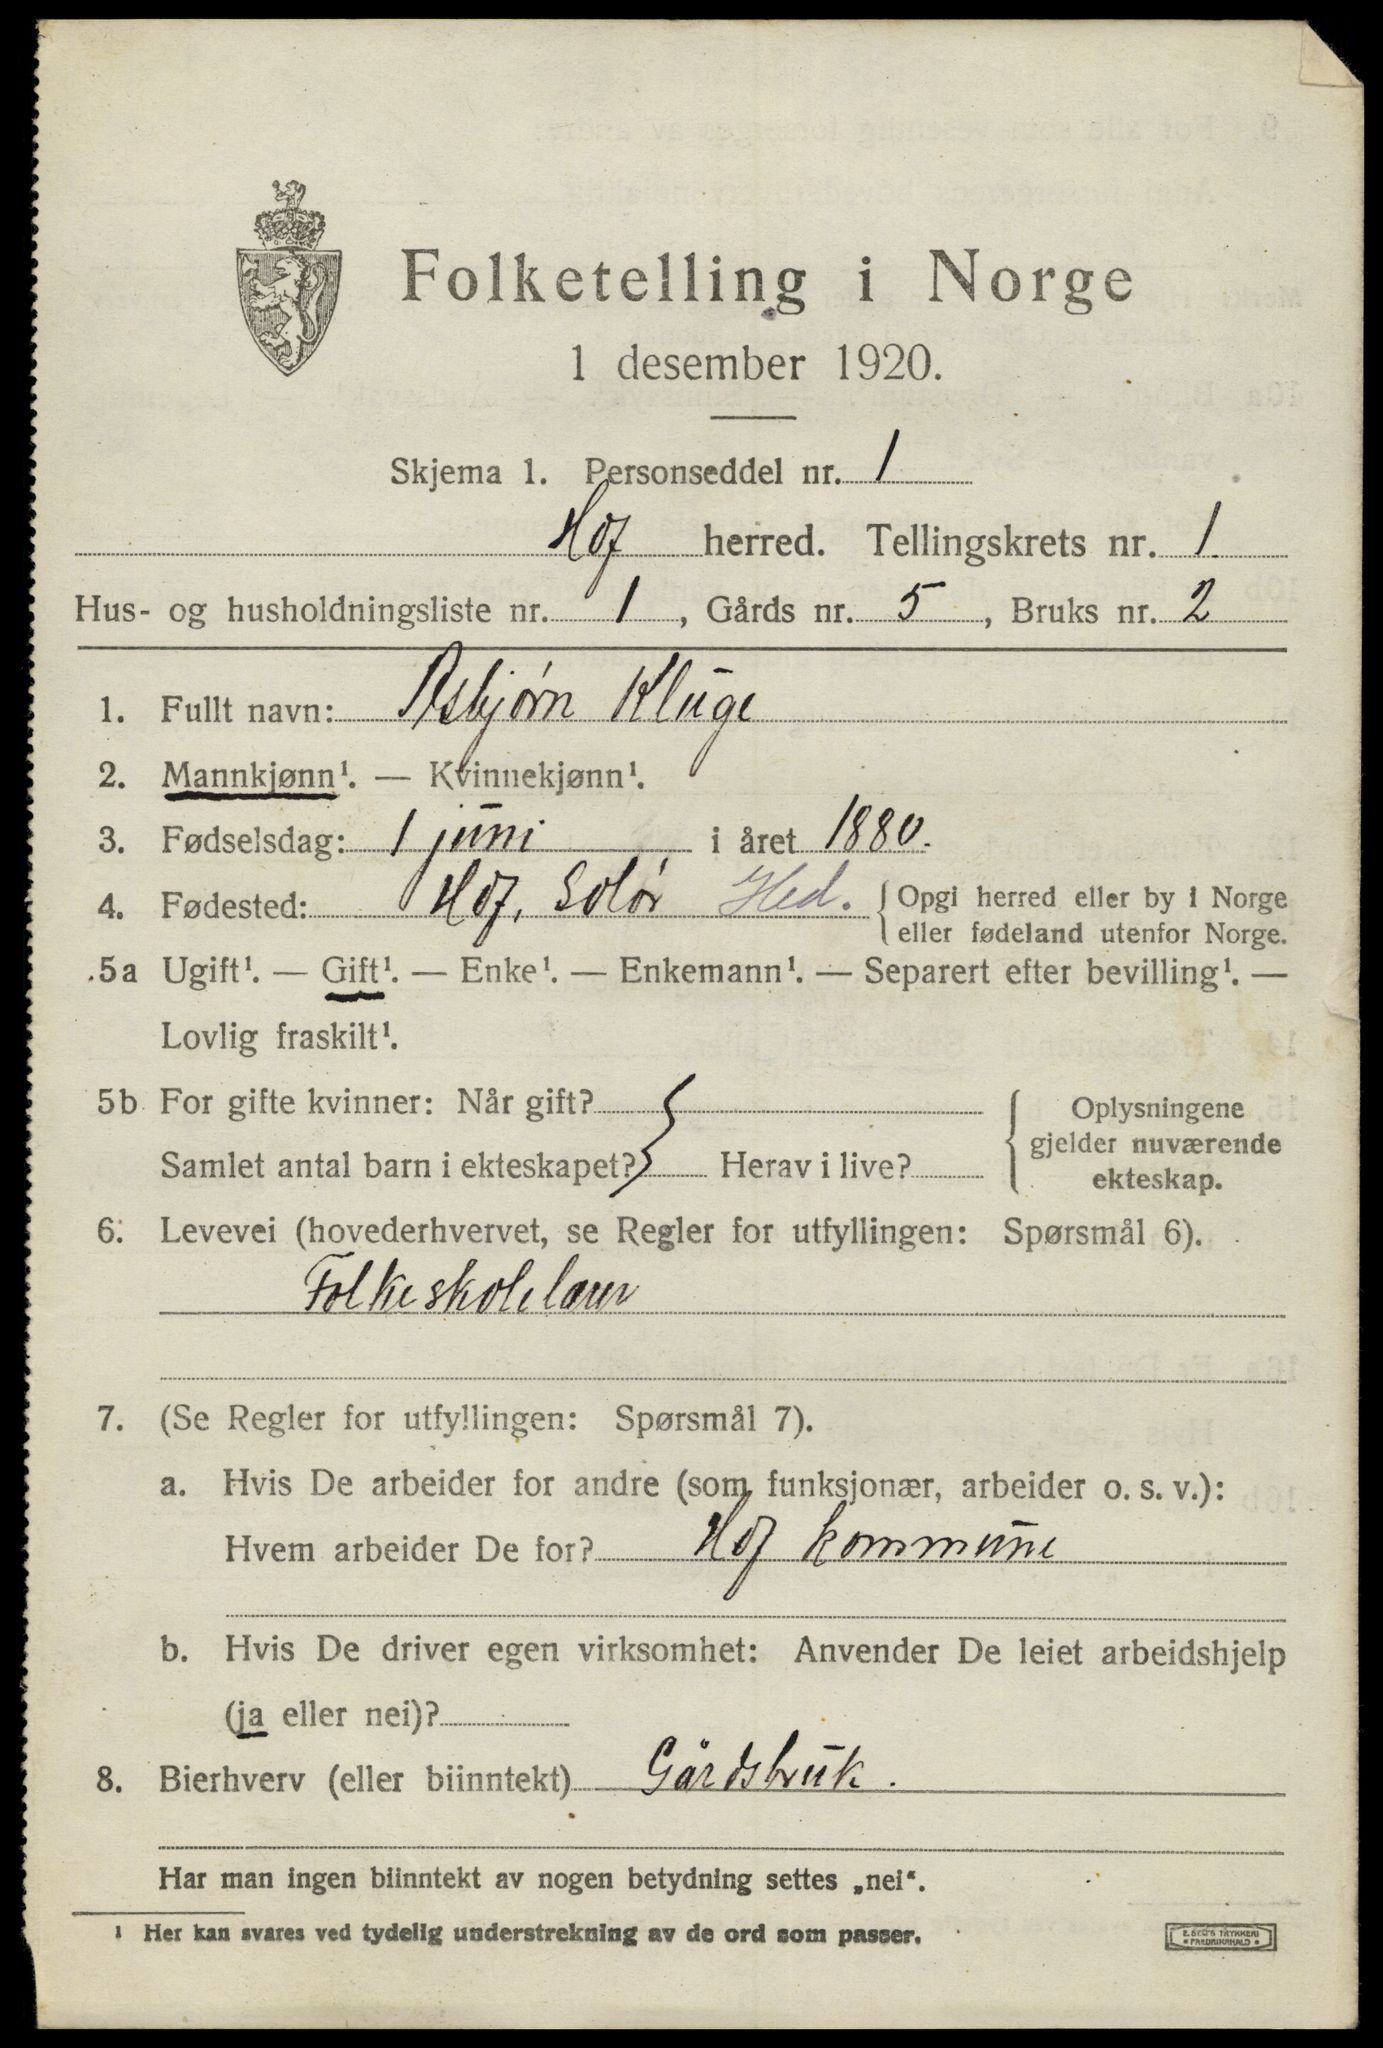 Folketelling i Norge
1 desember 1920.
Skjema 1. Personseddel nr. 1
Hof herred. Tellingskrets nr. 1
Hus- og husholdningsliste nr. 1, Gårds nr. 5, Bruks nr. 2
1. Fullt navn: Asbjørn Kluge
2. Mannkjønn¹. — Kvinnekjønn¹.
3. Fødselsdag: 1 juni i året 1880.
4. Fødested: Hof, Solør Hed. { Opgi herred eller by i Norge
eller fødeland utenfor Norge.
5a Ugift¹. — Gift¹. — Enke¹. — Enkemann¹. — Separert efter bevilling¹. —
Lovlig fraskilt¹.
5b For gifte kvinner: Når gift?
Samlet antal barn i ekteskapet? Herav i live?
{ Oplysningene
gjelder nuværende
ekteskap.
6. Levevei (hovederhvervet, se Regler for utfyllingen: Spørsmål 6).
Folkeskolelærer
7. (Se Regler for utfyllingen: Spørsmål 7).
a. Hvis De arbeider for andre (som funksjonær, arbeider o. s. v.):
Hvem arbeider De for? Hof kommune
b. Hvis De driver egen virksomhet: Anvender De leiet arbeidshjelp
(ja eller nei)?
8. Bierhverv (eller biinntekt) Gårdsbruk.
Har man ingen biinntekt av nogen betydning settes „nei“.
¹ Her kan svares ved tydelig understrekning av de ord som passer.
E. SEM'S TRYKKERI
• FREDRIKSHALD •